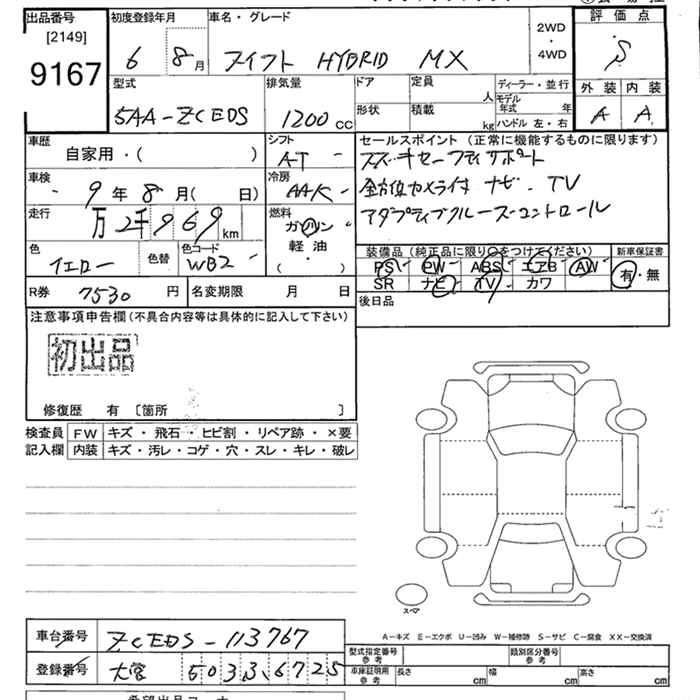 出品番号 初度登録年月 車名・グレード 評価点
[2149]
9167 6 8月 スイフト HYBRID MX 2WD・4WD S
型式 排気量 ドア 定員 人 ディーラー・並行 外装 内装
5AA-ZCEDS 1200cc 形状 積載 kg モデル年式 年 ハンドル 左・右 A A
車歴 自家用・( ) シフト AT セールスポイント (正常に機能するものに限ります)
車検 9年8月( 日) 冷房 AAC スズキセーフティサポート
全方位カメラ付 ナビ・TV
走行 万2千969km 燃料 ガソリン アダプティブクルーズコントロール
軽油
( )
色 イエロー 色替 色コード WB2 装備品 (純正品に限り○をつけてください) 新車保証書
PS PW ABS エアB AW 有・無
SR ナビ TV カワ
R券 7530円 名変期限 月 日 後日品
注意事項申告欄(不具合内容等は具体的に記入して下さい)
初出品
修復歴 有 〔箇所 〕
検査員 FW キズ・飛石・ヒビ割・リペア跡・×要
記入欄 内装 キズ・汚レ・コゲ・穴・スレ・キレ・破レ
スペア
A-キズ E-エクボ U-凹み W-補修跡 S-サビ C-腐食 XX-交換済
車台番号 ZCEDS-113767
型式指定番号 参考 類別区分番号 参考
登録番号 大宮 503 3 6725
車庫証明用 参考 長さ cm 幅 cm 高さ cm
希望出品コーナー